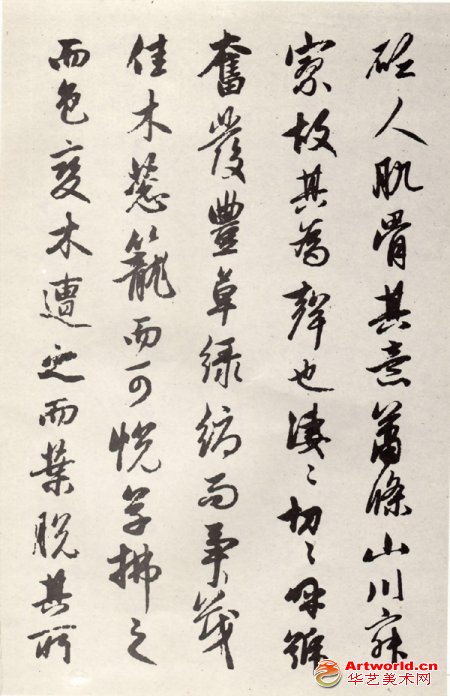 砭人肌骨其意蕭條山川寂
寥故其為聲也淒〻切〻呼號
奮發豐草綠縟而爭茂
佳木葱籠而可悅草拂之
而色變木遭之而葉脫其所
Artworld.cn
华艺美术网